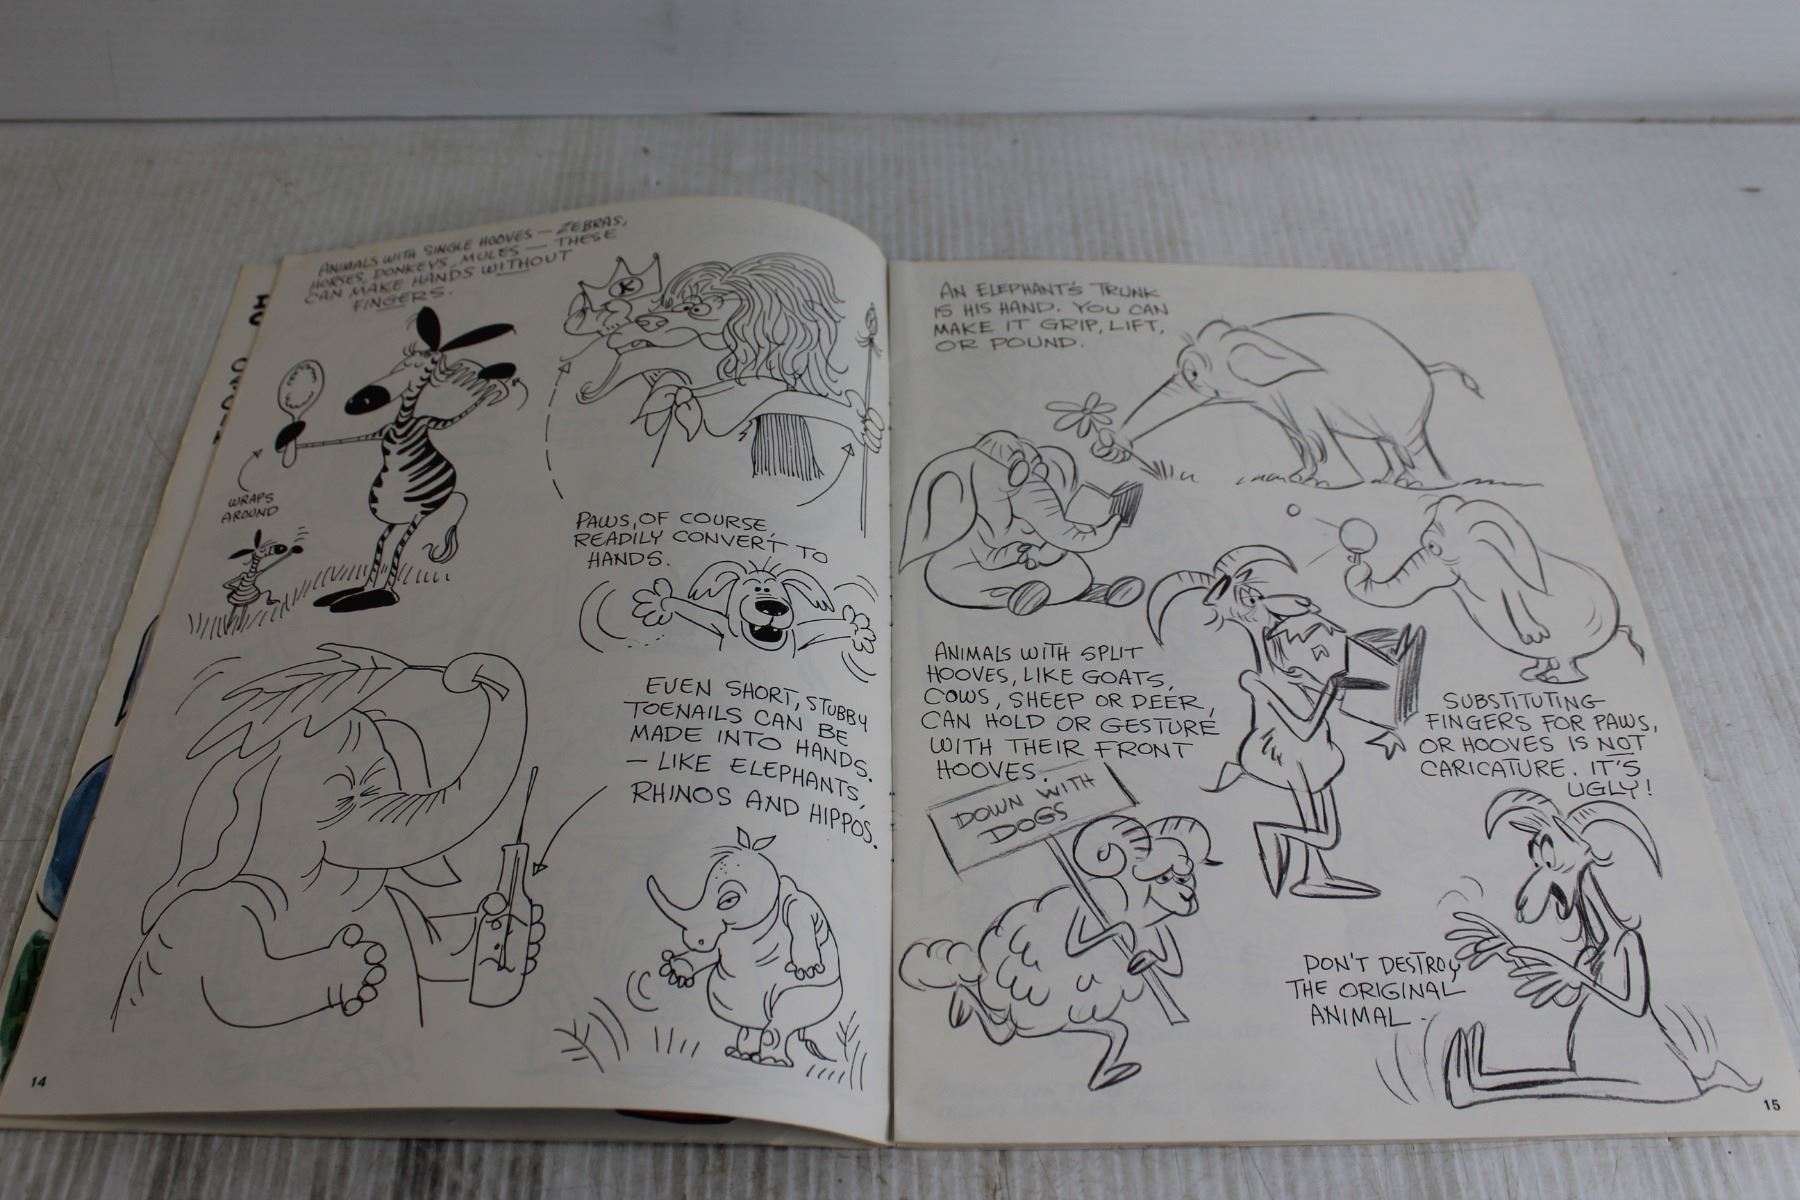 ANIMALS WITH SINGLE HOOVES — ZEBRAS,
HORSES, DONKEYS, MULES — THESE
CAN MAKE HANDS WITHOUT
FINGERS.
K
WRAPS
AROUND
PAWS, OF COURSE,
READILY CONVERT TO
HANDS.
EVEN SHORT, STUBBY
TOENAILS CAN BE
MADE INTO HANDS.
— LIKE ELEPHANTS,
RHINOS AND HIPPOS.
14
AN ELEPHANT'S TRUNK
IS HIS HAND. YOU CAN
MAKE IT GRIP, LIFT,
OR POUND.
ANIMALS WITH SPLIT
HOOVES, LIKE GOATS,
COWS, SHEEP OR DEER,
CAN HOLD OR GESTURE
WITH THEIR FRONT
HOOVES.
DOWN WITH
DOGS
SUBSTITUTING
FINGERS FOR PAWS,
OR HOOVES IS NOT
CARICATURE. IT'S
UGLY!
DON'T DESTROY
THE ORIGINAL
ANIMAL.
15